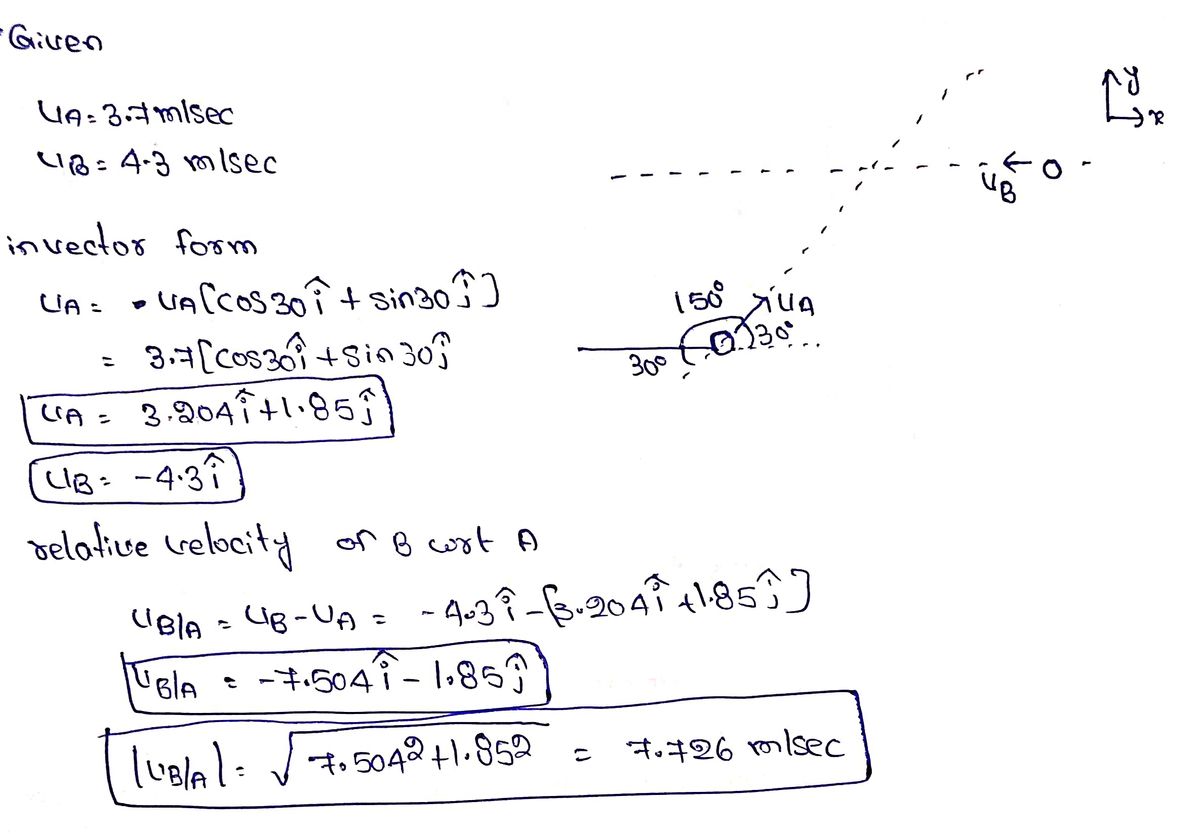 Given
UA = 3.7 m/sec
UB = 4.3 m/sec
in vector form
UA = UA[cos30 î + sin30 ĵ]
= 3.7[cos30 î + sin30 ĵ
UA = 3.204 î + 1.85 ĵ
UB = -4.3 î
relative velocity of B wrt A
UB/A = UB - UA = -4.3 î - [3.204 î + 1.85 ĵ]
UB/A = -7.504 î - 1.85 ĵ
|UB/A| = √7.504² + 1.85² = 7.726 m/sec
y
x
UB
150°
UA
30°
30°